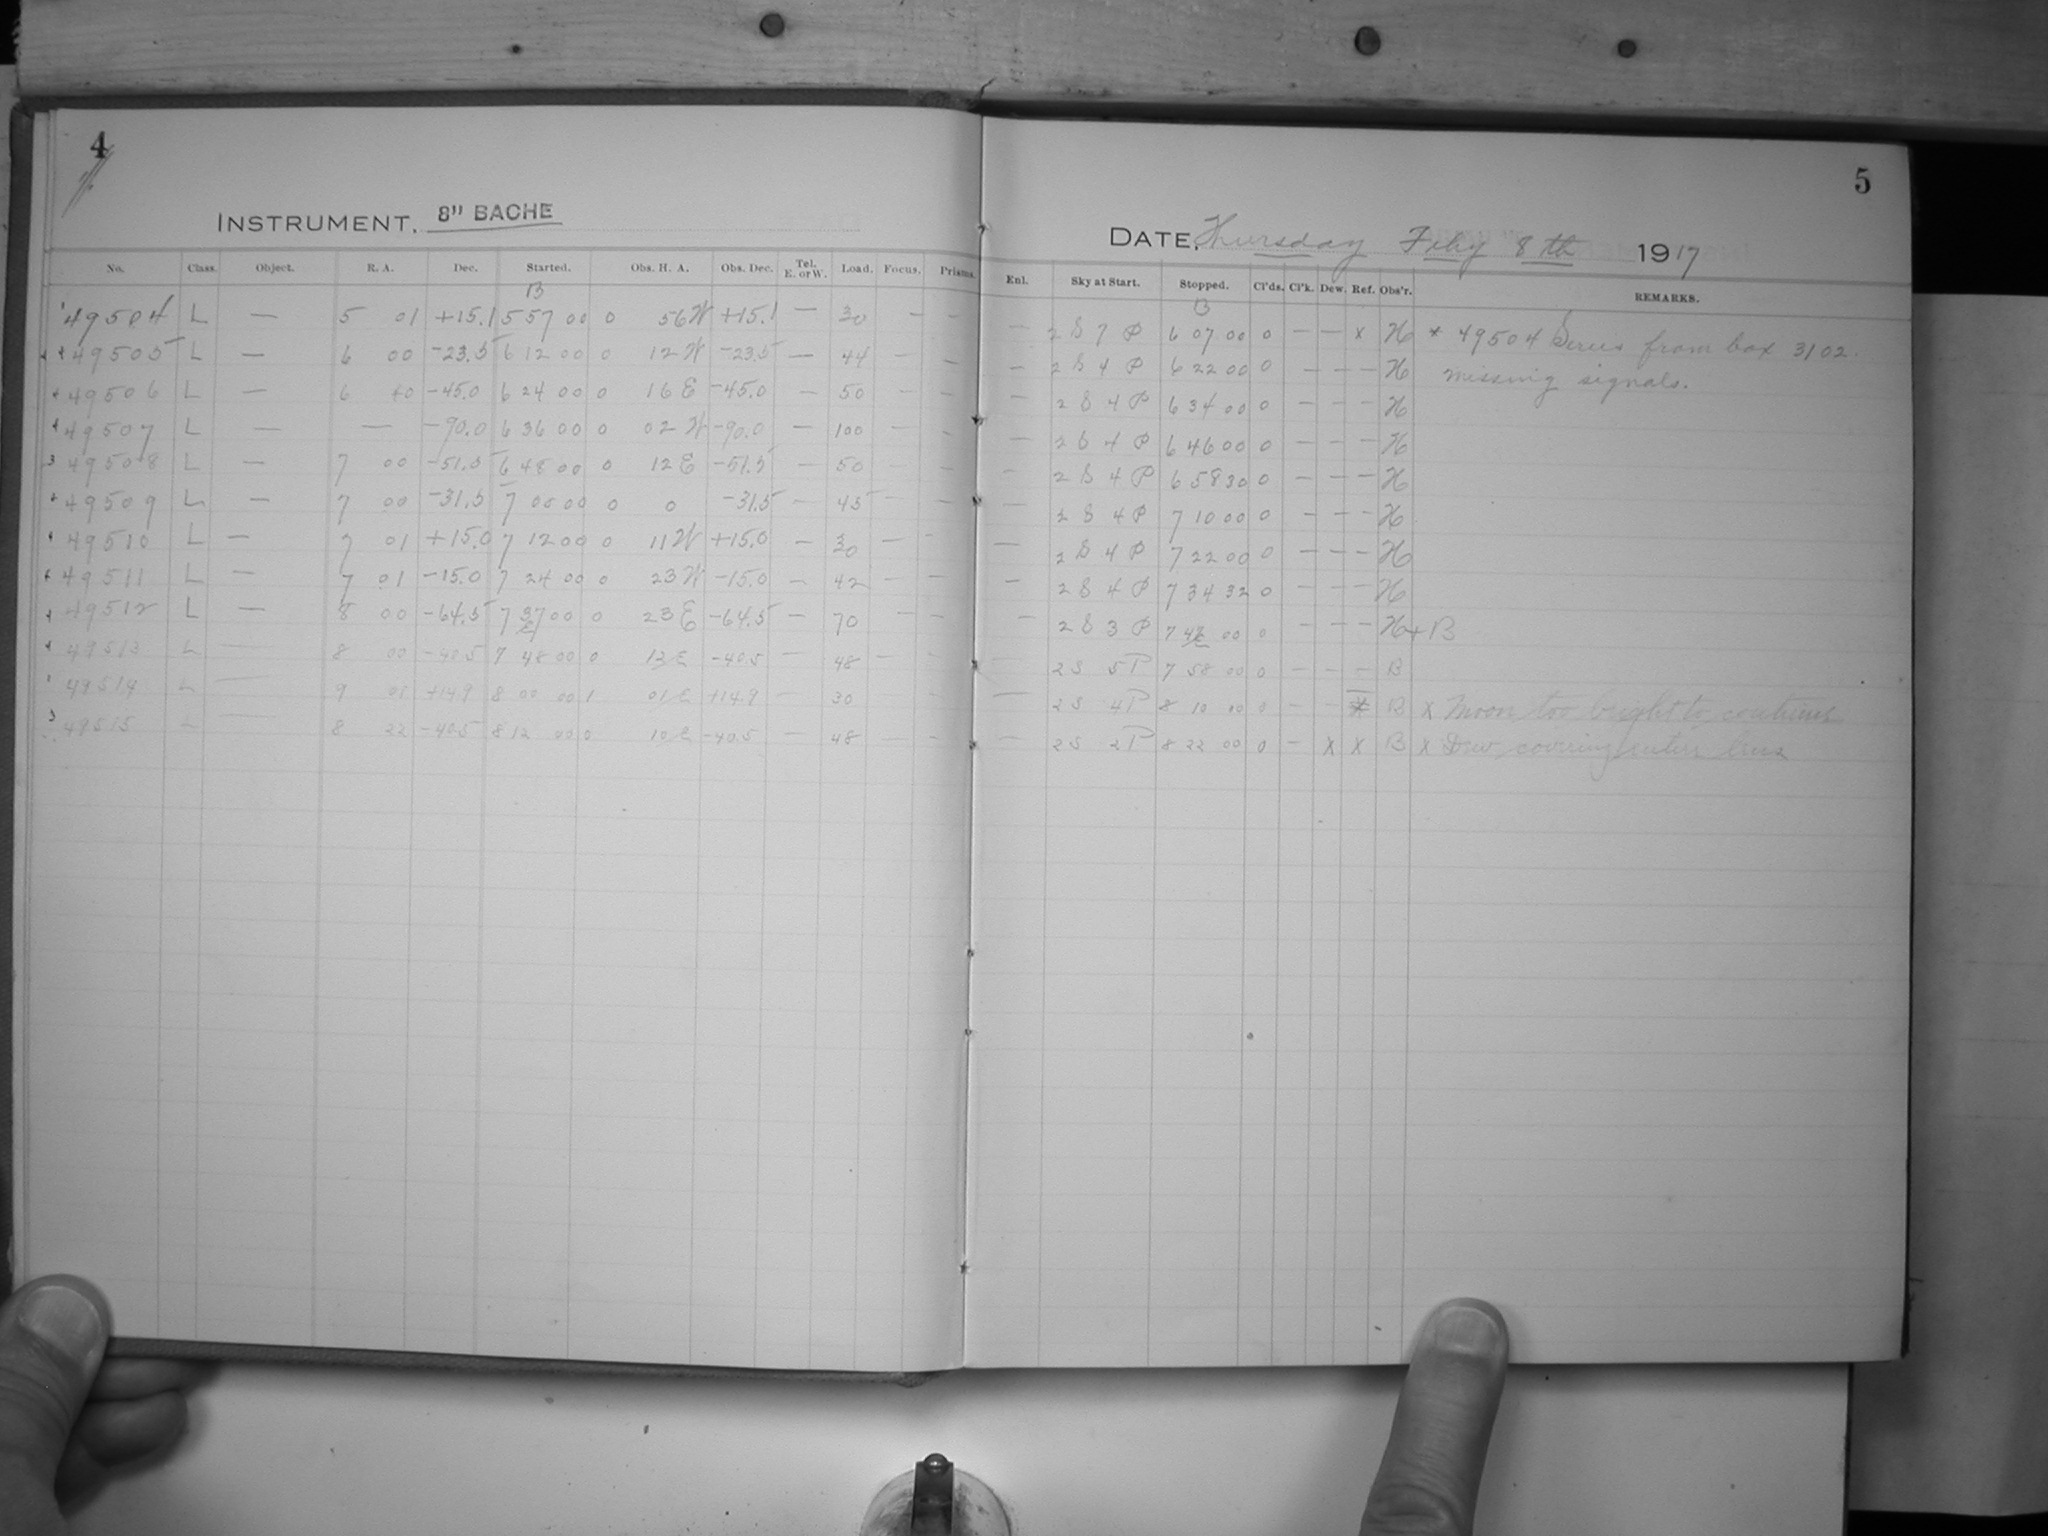 4 5
INSTRUMENT. 8" BACHE DATE, Thursday Feby 8th 1917
No. Class. Object. R. A. Dec. Started. Obs. H. A. Obs. Dec. Tel. E. or W. Load. Focus. Prisms. Enl. Sky at Start. Stopped. Cl'ds. Cl'k. Dew. Ref. Obs'r. REMARKS.
B B
1 49504 L — 5 01 +15.1 5 57 00 0 56 W +15.1 — 30 — — — 2 S 7 P 6 07 00 0 — — x H * 49504 Series from box 3102.
49505 L — 6 00 -23.5 6 12 00 0 12 W -23.5 — 44 — — — 2 S 4 P 6 22 00 0 — — — H missing signals.
49506 L — 6 40 -45.0 6 24 00 0 16 E -45.0 — 50 — — — 2 S 4 P 6 34 00 0 — — — H
49507 L — — -90.0 6 36 00 0 02 W -90.0 — 100 — — — 2 S 4 P 6 46 00 0 — — — H
3 49508 L — 7 00 -51.5 6 48 00 0 12 E -51.5 — 50 — — — 2 S 4 P 6 58 30 0 — — — H
49509 L — 7 00 -31.5 7 00 00 0 0 -31.5 — 45 — — — 2 S 4 P 7 10 00 0 — — — H
49510 L — 7 01 +15.0 7 12 00 0 11 W +15.0 — 30 — — — 2 S 4 P 7 22 00 0 — — — H
49511 L — 7 01 -15.0 7 24 00 0 23 W -15.0 — 42 — — — 2 S 4 P 7 34 32 0 — — — H
49512 L — 8 00 -64.5 7 37 00 0 23 E -64.5 — 70 — — — 2 S 3 P 7 00 0 — — — H+B
49513 L — 8 00 -40.5 7 48 00 0 12 E -40.5 — 48 — — — 2 S 5 P 7 58 00 0 — — — B
49514 L — 9 01 +14.9 8 00 00 1 01 E +14.9 — 30 — 2 S 4 P 8 10 00 0 — — B x Moon too bright to continue
3 49515 — — 8 22 -40.5 8 12 00 0 10 E -40.5 — 48 — — — 2 S 2 P 8 22 00 0 — x x B x Dew covering entire lens